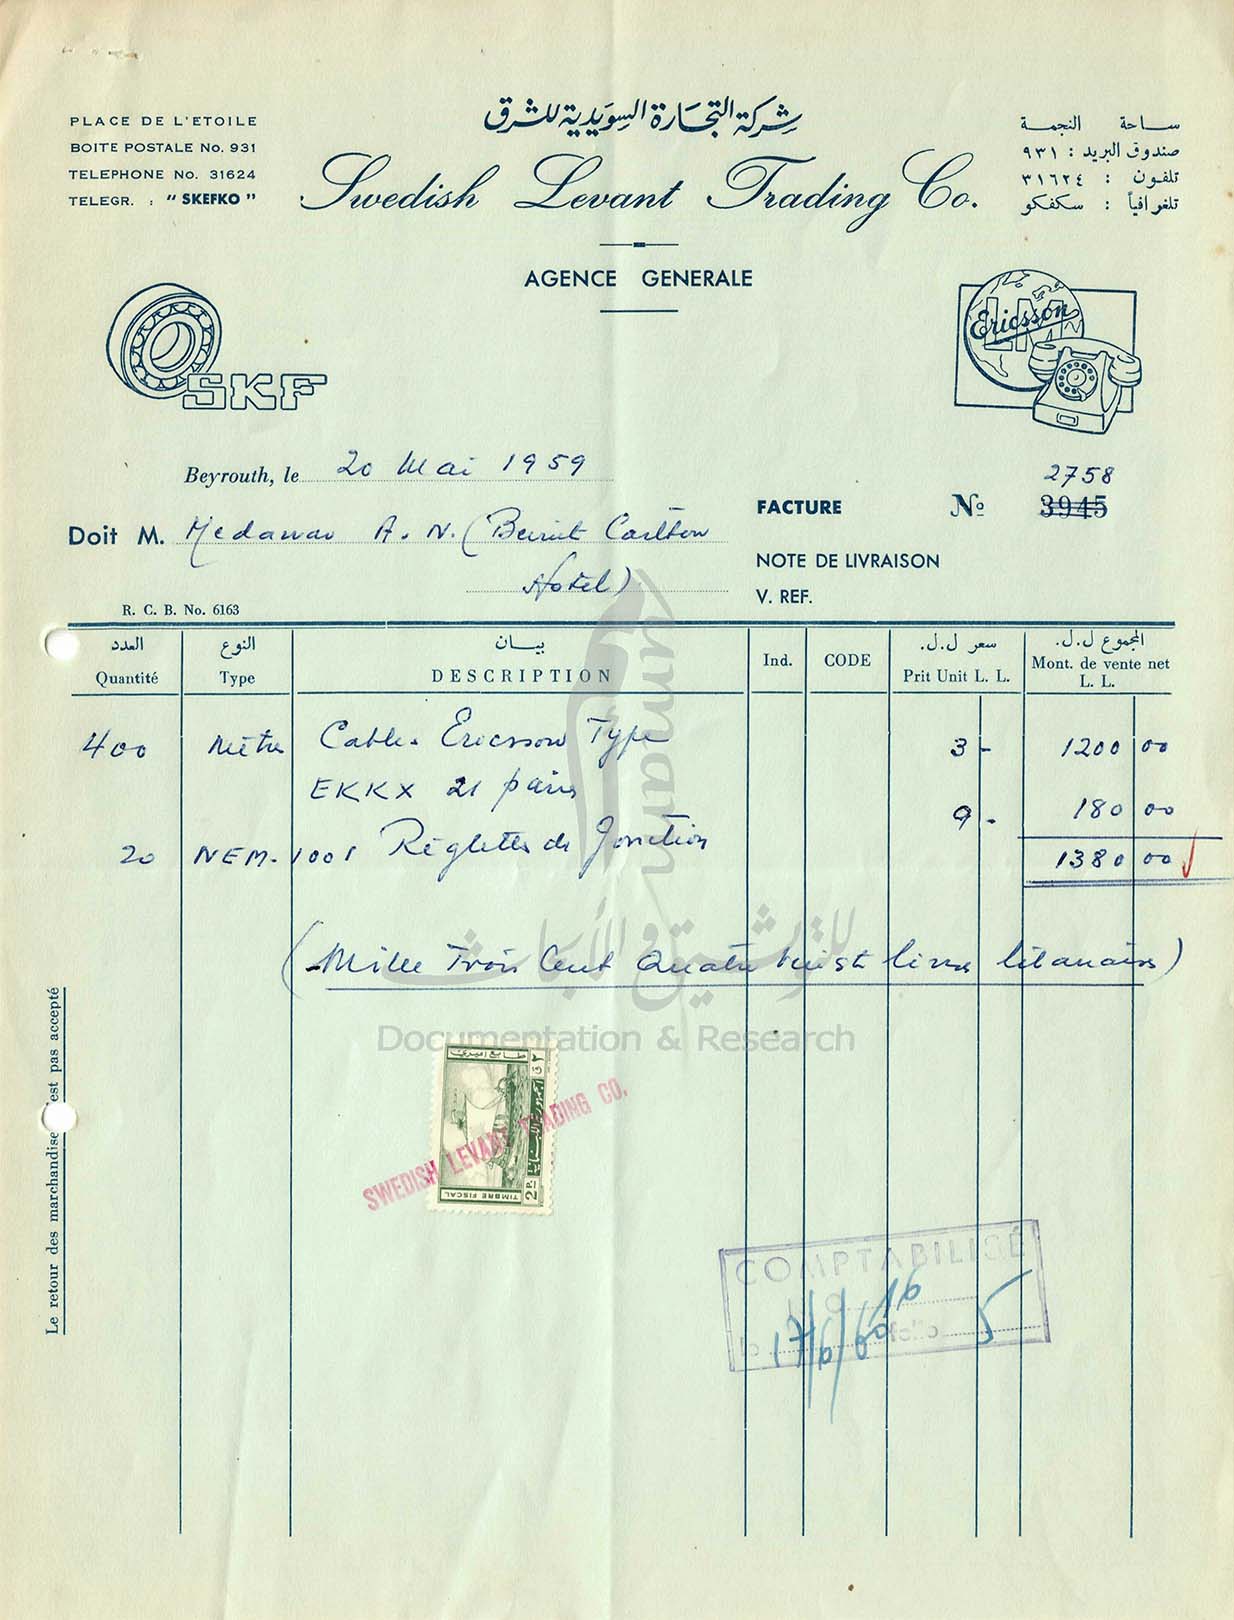 PLACE DE L'ETOILE
BOITE POSTALE No. 931
TELEPHONE No. 31624
TELEGR. : "SKEFKO"
شركة التجارة السويدية للشرق
Swedish Levant Trading Co.
AGENCE GENERALE
ساحة النجمة
صندوق البريد : ٩٣١
تلفون : ٣١٦٢٤
تلغرافياً : سكفكو
SKF
LM Ericsson
Beyrouth, le 20 Mai 1959
2758
FACTURE No 3945
Doit M. Medawar A. N. (Beirut Carlton
Hotel)
NOTE DE LIVRAISON
V. REF.
R. C. B. No. 6163
العدد النوع بيان سعر ل.ل. المجموع ل.ل.
Quantité Type DESCRIPTION Ind. CODE Prit Unit L. L. Mont. de vente net L. L.
400 Mètre Cable Ericsson Type 3 - 1200 00
EKKX 21 pairs
20 NEM-1001 Règlettes de Jonction 9 - 180 00
1380 00
(Mille Trois Cent Quatre Vingt livres libanaises)
umam
للتوثيق والأبحاث
Documentation & Research
طابع اميري
٢ ق
الجمهورية اللبنانية
TIMBRE FISCAL
2 P.
SWEDISH LEVANT TRADING CO.
COMPTABILISÉ
No 16
le 17/6/60 folio 5
Le retour des marchandises est pas accepté